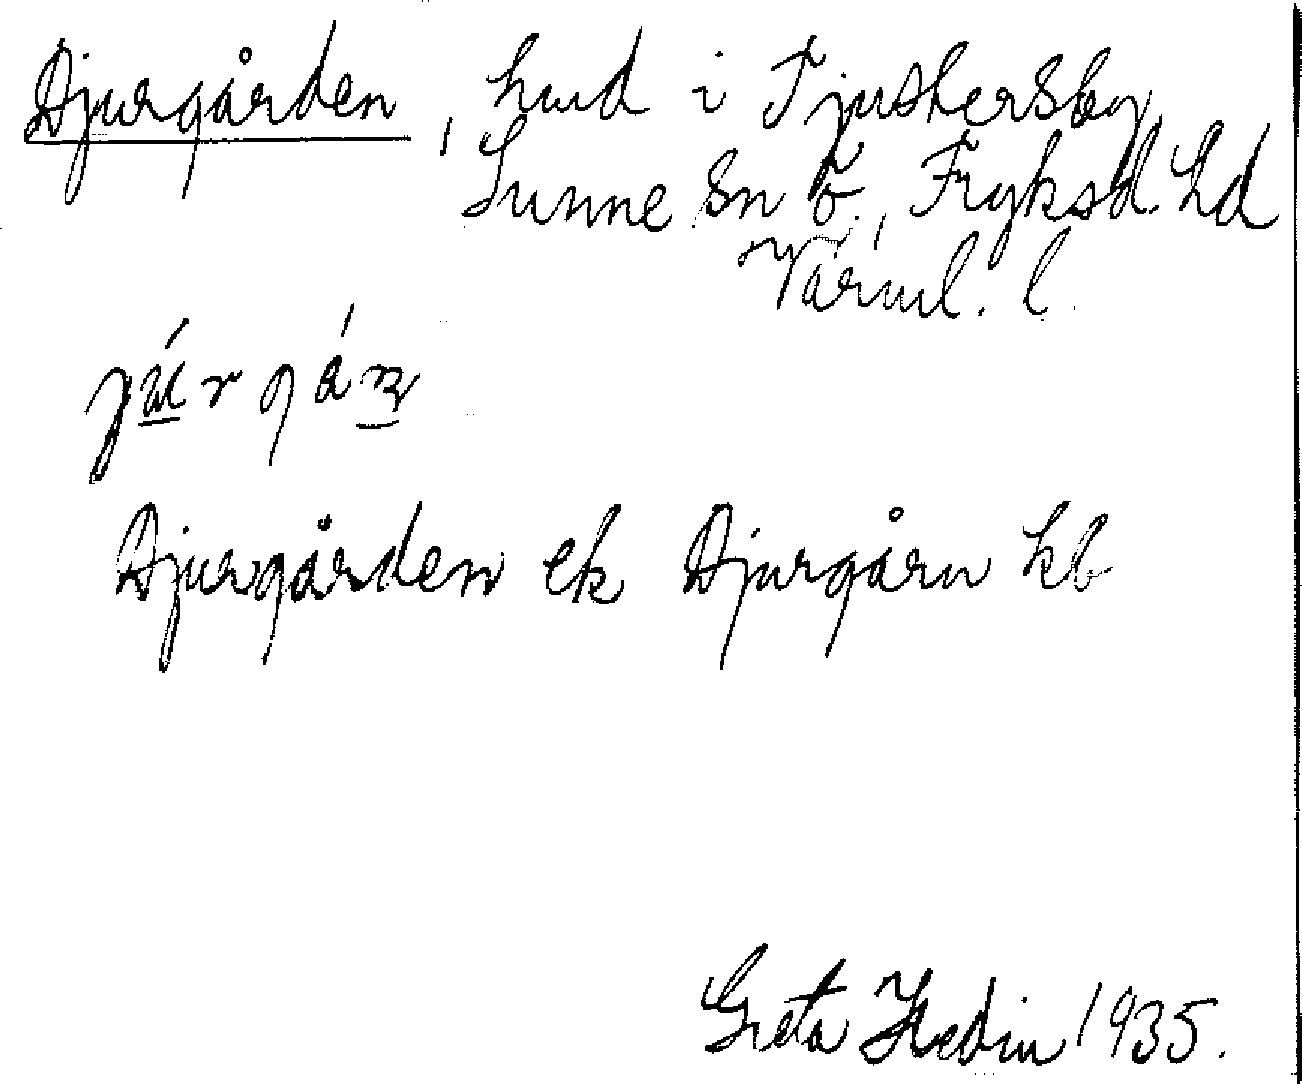 Djurgården, hmd i Tjustersby,
Sunne sn Ö., Fryksd. hd
Värml. l.
Djurgården ek Djurgårn kb
Greta Hedin 1935.